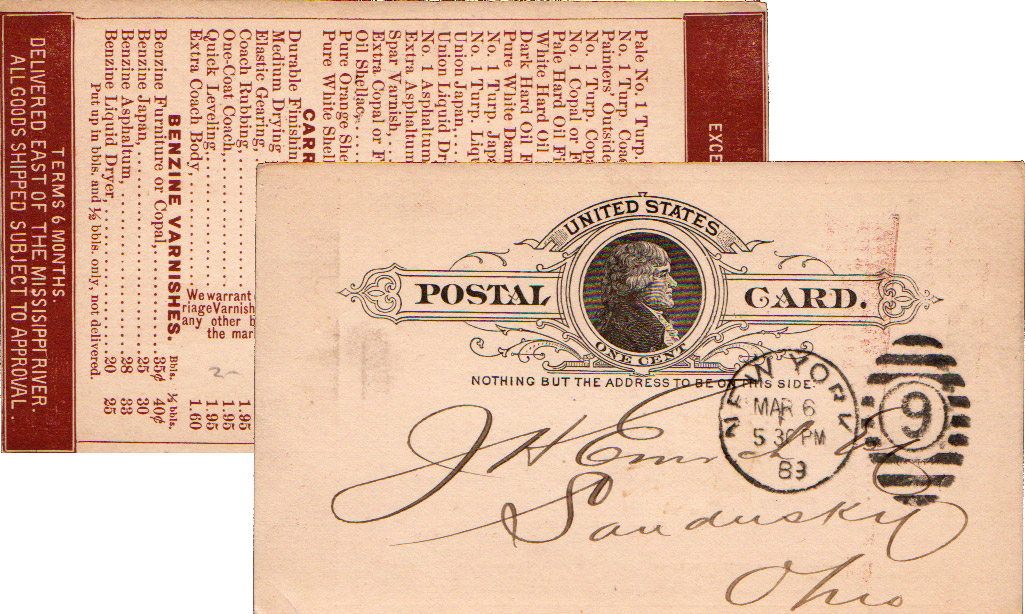 UNITED STATES
POSTAL CARD.
ONE CENT
NOTHING BUT THE ADDRESS TO BE ON THIS SIDE.
NEW YORK
MAR 6
5 30 PM
89
9
J H
Sandusky
Ohio
EXCE
Pale No. 1 Turp.
No. 1 Turp. Coac
Painters' Outside
No. 1 Turp. Copa
No. 1 Copal or F
Pale Hard Oil Fi
White Hard Oil
Dark Hard Oil F
Pure White Dam
No. 1 Turp. Japa
No. 1 Turp. Liqu
Union Japan,...
Union Liquid Dr
No. 1 Asphaltum
Extra Asphaltum
Spar Varnish,
Extra Copal or F
Oil Shellac,...
Pure Orange She
Pure White Shell
CARR
Durable Finishin
Medium Drying
Elastic Gearing,
Coach Rubbing,........ 1.95
One-Coat Coach,........ 1.95
Quick Leveling,........ 1.95
Extra Coach Body,........ 1.60
We warrant
riage Varnish
any other b
the mar
BENZINE VARNISHES. Bbls. ½ bbls.
Benzine Furniture or Copal,........ 35¢ 40¢
Benzine Japan,........ 25 30
Benzine Asphaltum,........ 28 33
Benzine Liquid Dryer,........ 20 25
Put up in bbls. and ½ bbls. only, not delivered.
TERMS 6 MONTHS.
DELIVERED EAST OF THE MISSISIPPI RIVER.
ALL GOODS SHIPPED SUBJECT TO APPROVAL.